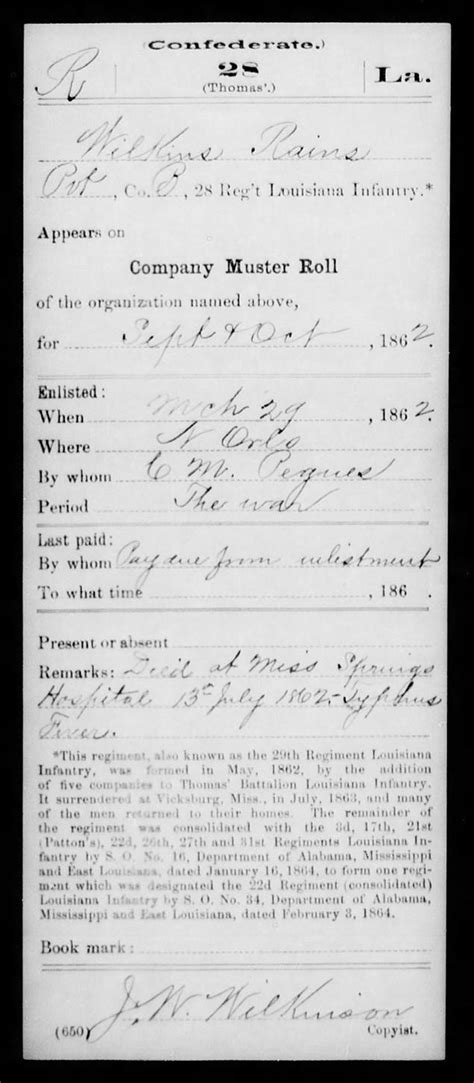 (Confederate.)
R 28 La.
(Thomas'.)
Wilkins Rains
Pvt, Co. B, 28 Reg't Louisiana Infantry.*
Appears on
Company Muster Roll
of the organization named above,
for Sept & Oct, 1862.
Enlisted:
When Mch 29, 1862.
Where N Orls
By whom C M. Pegues
Period The war
Last paid:
By whom Pay due from enlistment
To what time , 186 .
Present or absent
Remarks: Died at Miss Springs
Hospital 13th July 1862 - Typhus
Fever.
*This regiment, also known as the 29th Regiment Louisiana
Infantry, was formed in May, 1862, by the addition
of five companies to Thomas' Battalion Louisiana Infantry.
It surrendered at Vicksburg, Miss., in July, 1863, and many
of the men returned to their homes. The remainder of
the regiment was consolidated with the 3d, 17th, 21st
(Patton's), 22d, 26th, 27th and 31st Regiments Louisiana In-
fantry by S. O. No. 16, Department of Alabama, Mississippi
and East Louisiana, dated January 16, 1864, to form one regi-
ment which was designated the 22d Regiment (consolidated)
Louisiana Infantry by S. O. No. 34, Department of Alabama,
Mississippi and East Louisiana, dated February 3, 1864.
Book mark:
J. W. Wilkinson
(650) Copyist.